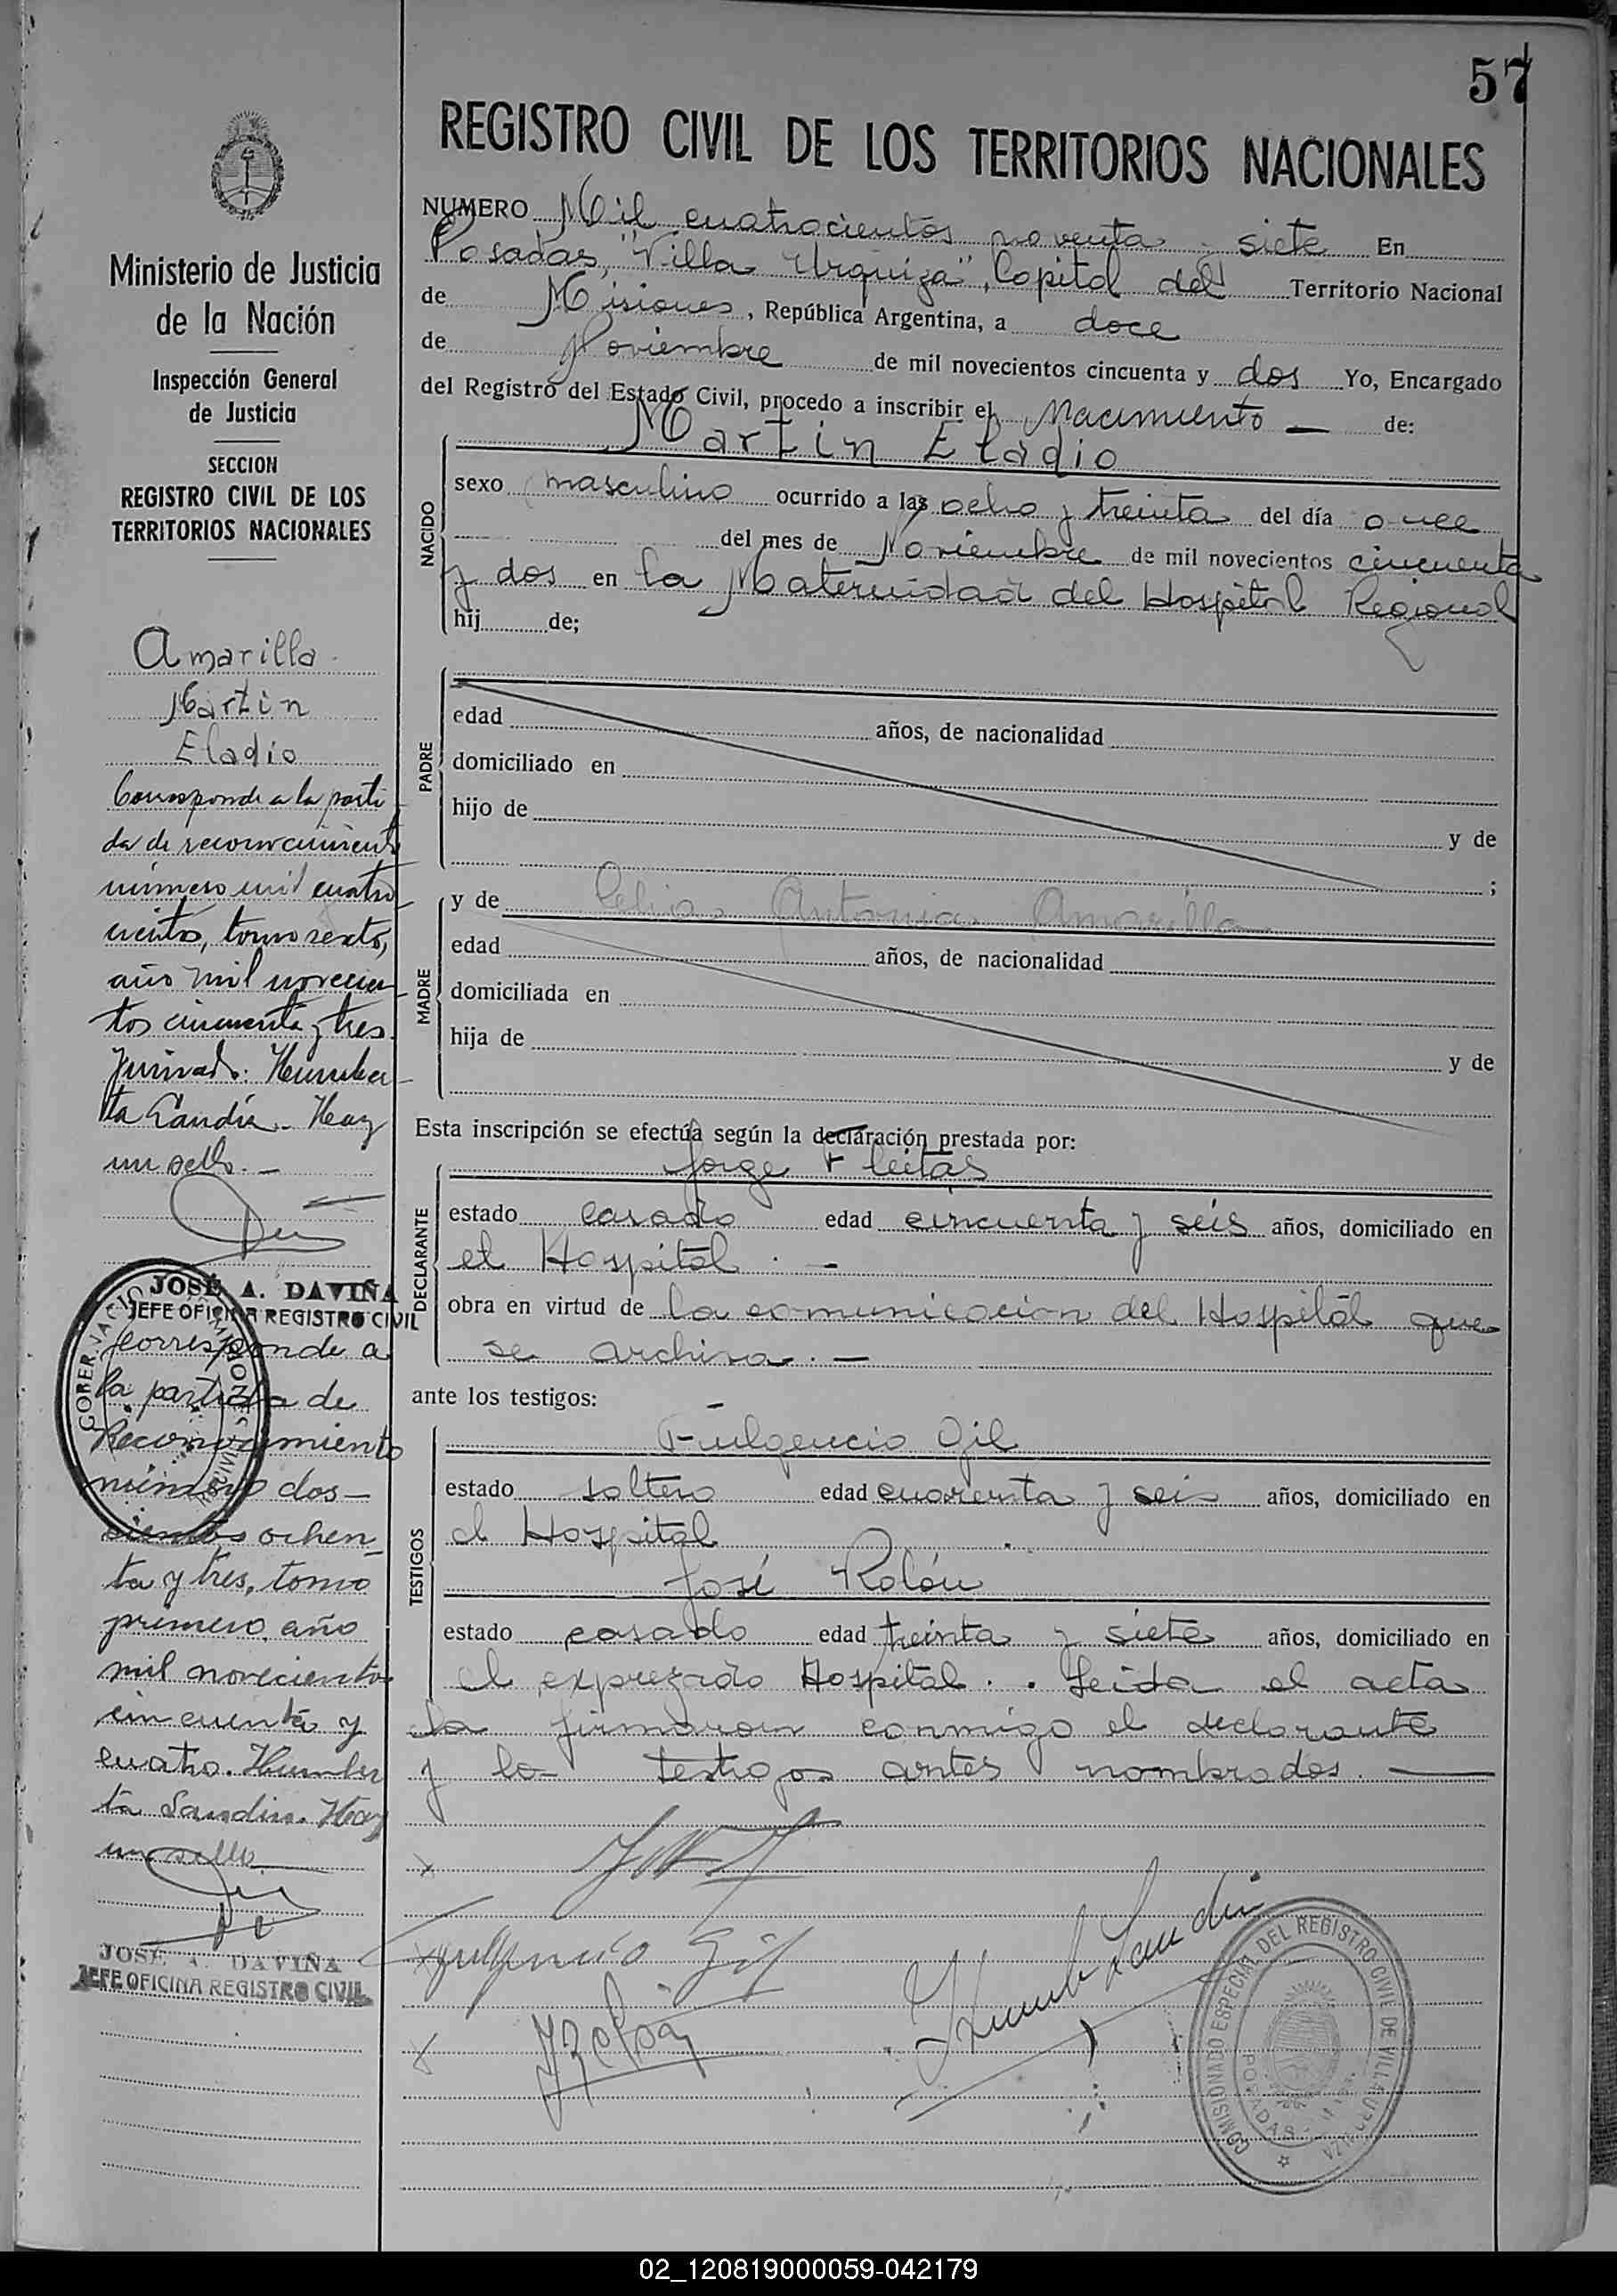 57
REGISTRO CIVIL DE LOS TERRITORIOS NACIONALES
NUMERO Mil cuatrocientos noventa siete En
Posadas, "Villa Urquiza", Capital del Territorio Nacional
de Misiones, República Argentina, a doce
de Noviembre de mil novecientos cincuenta y dos Yo, Encargado
del Registro del Estado Civil, procedo a inscribir el Nacimiento — de:
Martin Eladio
NACIDO
sexo masculino ocurrido a las ocho y treinta del día once
del mes de Noviembre de mil novecientos cincuenta
y dos en la Maternidad del Hospital Regional
hij de;
PADRE
edad años, de nacionalidad
domiciliado en
hijo de y de
;
MADRE
y de Celia Antonia Amarilla
edad años, de nacionalidad
domiciliada en
hija de y de
Esta inscripción se efectúa según la declaración prestada por:
DECLARANTE
Jorge Fleitas
estado casado edad cincuenta y seis años, domiciliado en
el Hospital . —
obra en virtud de la comunicacion del Hospital que
se archiva . —
ante los testigos:
TESTIGOS
Fulgencio Gil
estado soltero edad cuarenta y seis años, domiciliado en
el Hospital
José Rolón
estado casado edad treinta y siete años, domiciliado en
el exprezado Hospital . . Leida el acta
la firmaron conmigo el declarante
y los testigos antes nombrados. —
Fulgencio Gil
J Rolón
COMISIONADO ESPECIAL DEL REGISTRO CIVIL DE VILLA URQUIZA
POSADAS
Ministerio de Justicia
de la Nación
Inspección General
de Justicia
SECCION
REGISTRO CIVIL DE LOS
TERRITORIOS NACIONALES
Amarilla
Martin
Eladio
Corresponde a la parti-
da de reconocimiento
número mil cuatro-
cientos, tomo sexto,
año mil novecien-
tos cincuenta y tres.
Firmado: Humber-
ta Landin. Hay
un sello. —
JOSÉ A. DAVIÑA
JEFE OFICINA REGISTRO CIVIL
GOBERNACIO MISIONES
Corresponde a
la partida de
Reconocimiento
número dos—
cientos ochen-
ta y tres, tomo
primero, año
mil novecientos
cincuenta y
cuatro. Humber
ta Landin. Hay
un sello
JOSÉ A. DAVIÑA
JEFE OFICINA REGISTRO CIVIL
02_120819000059-042179